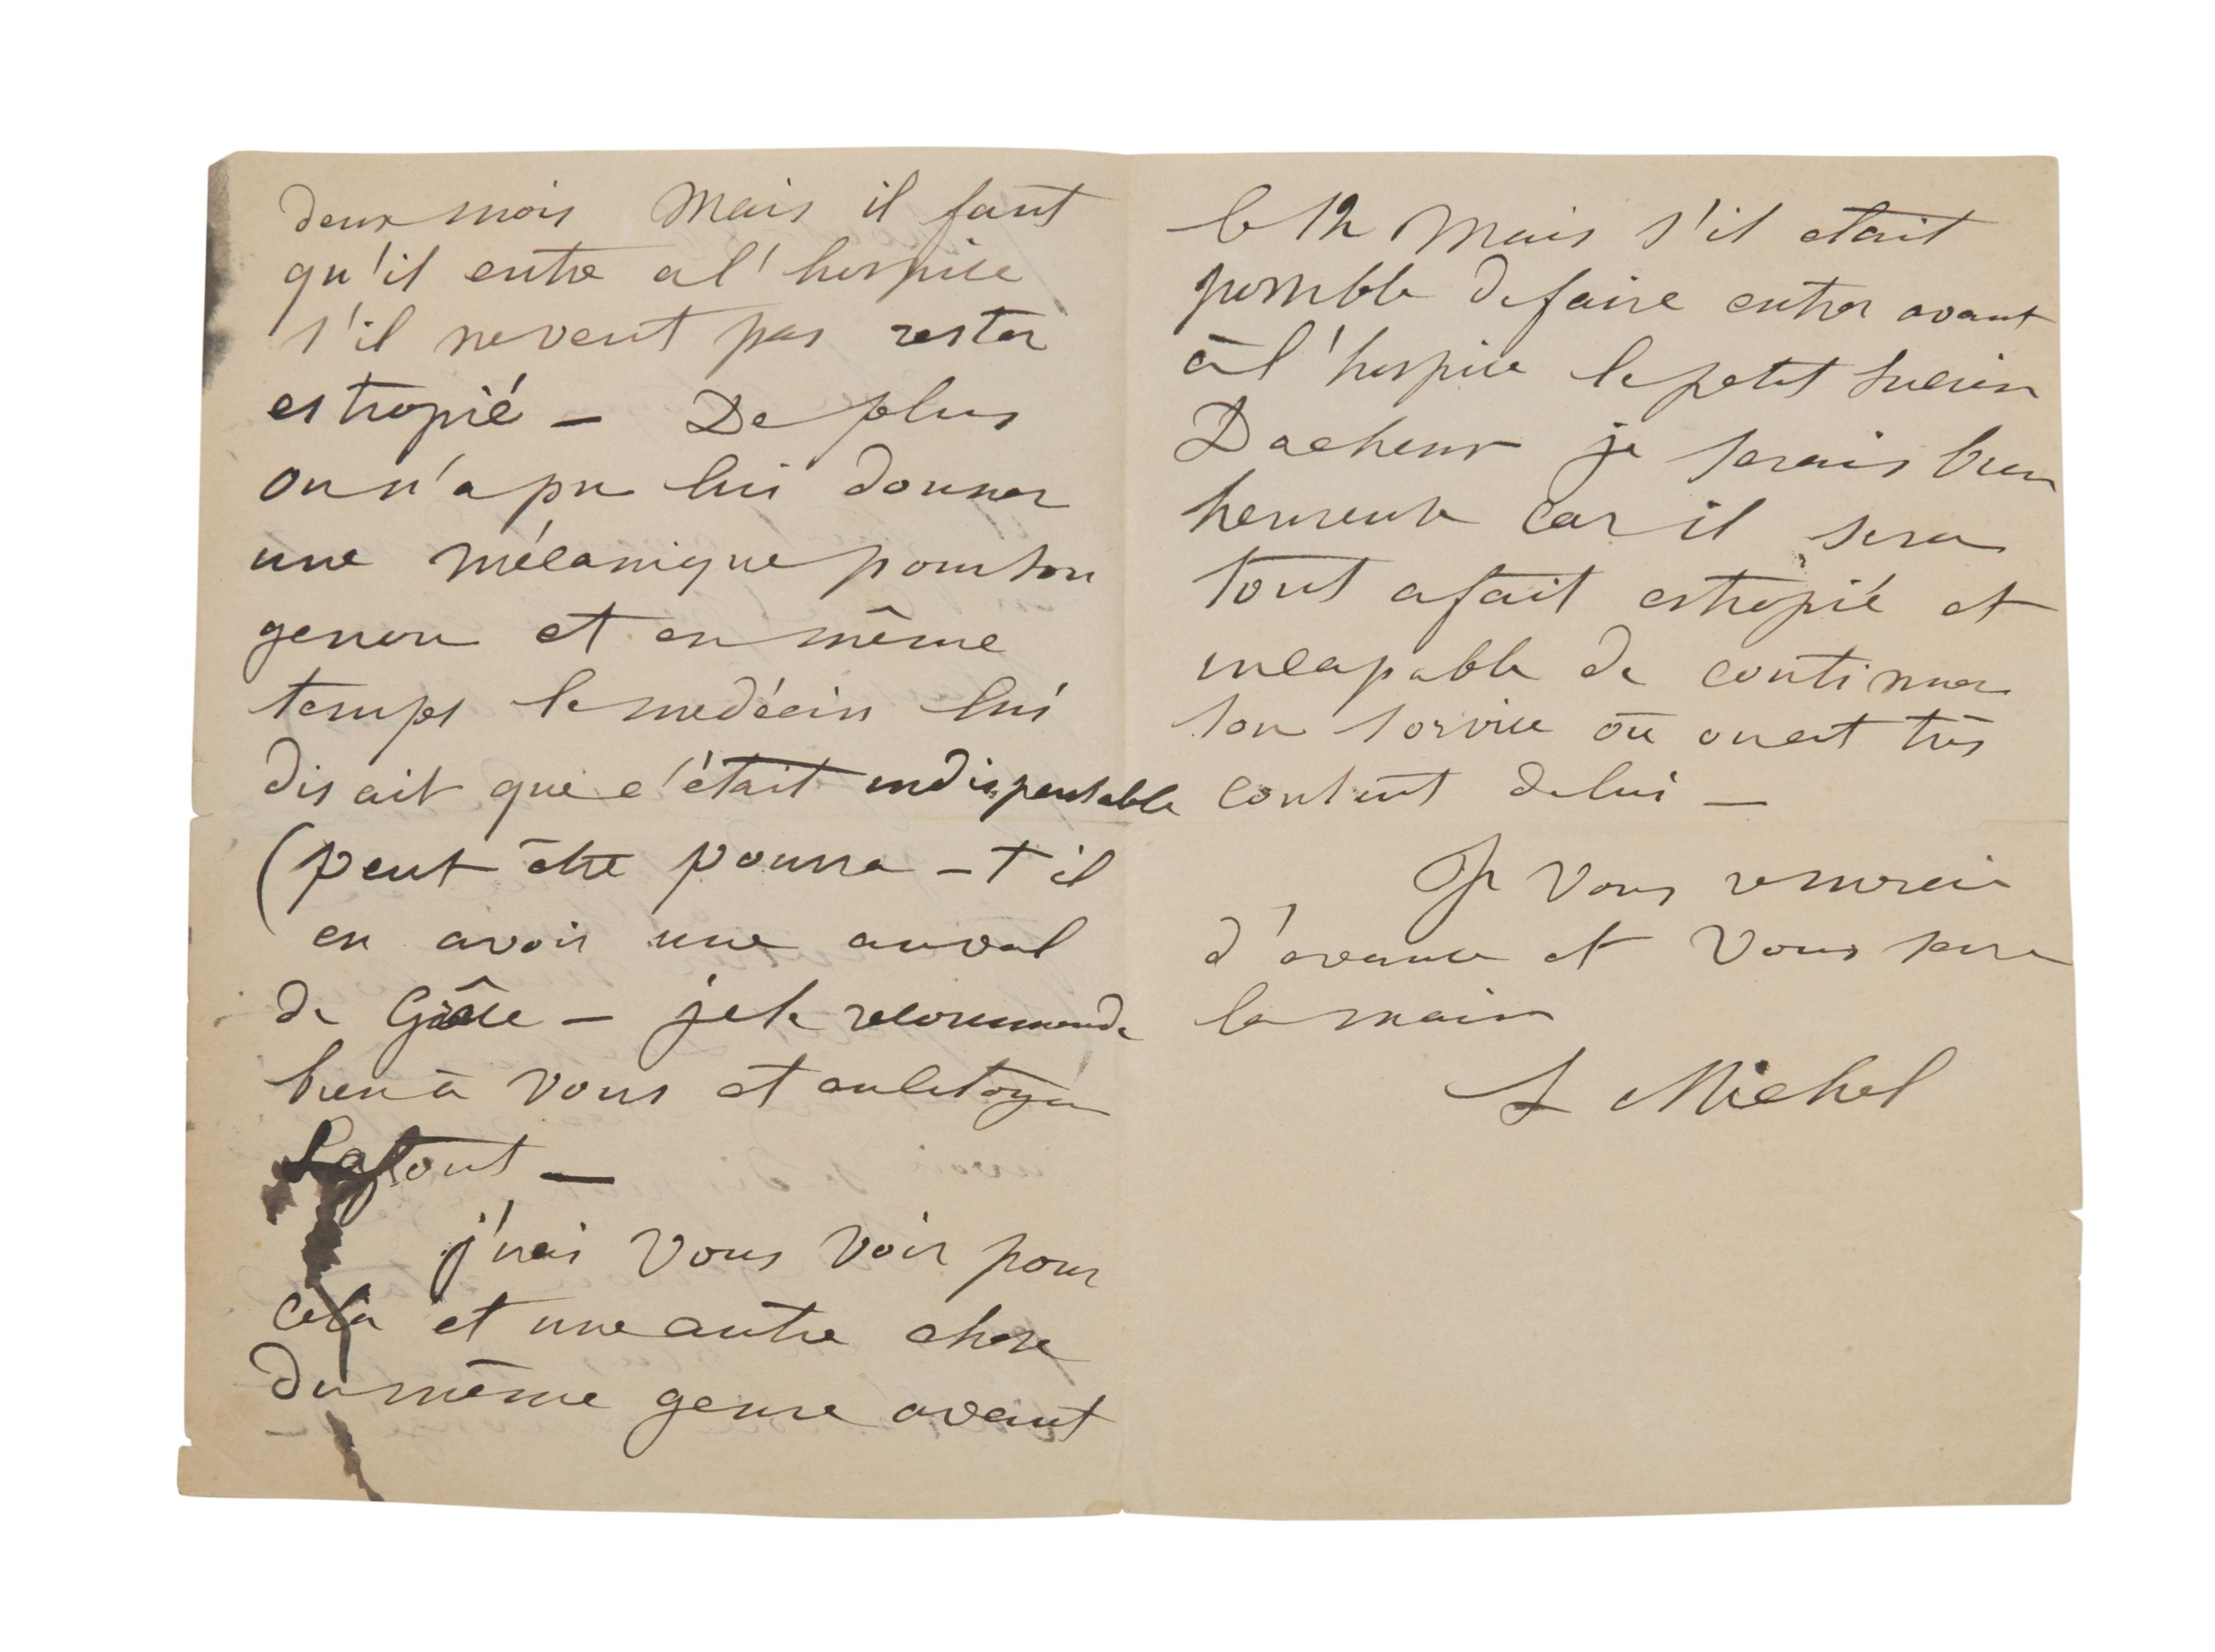 deux mois Mais il faut
qu'il entre a l'hospice
s'il ne veut pas rester
estropié — De plus
on n'a pu lui donner
une mécanique pour son
genou et en même
temps le medécin lui
disait que c'était indispensable
(peut être pourra-t il
en avoir une au val
de Grâce — je le recommande
bien à vous et au citoyen
Lafont —
j'irai vous voir pour
cela et une autre chose
du même genre avant
le 12 Mais s'il etait
possible de faire entrer avant
à l'hospice le petit Lucien
Dacheux je serais bien
heureuse car il sera
tout a fait estropié et
incapable de continuer
son service où on est très
content de lui —
Je vous remercie
d'avance et vous serre
la main
L Michel